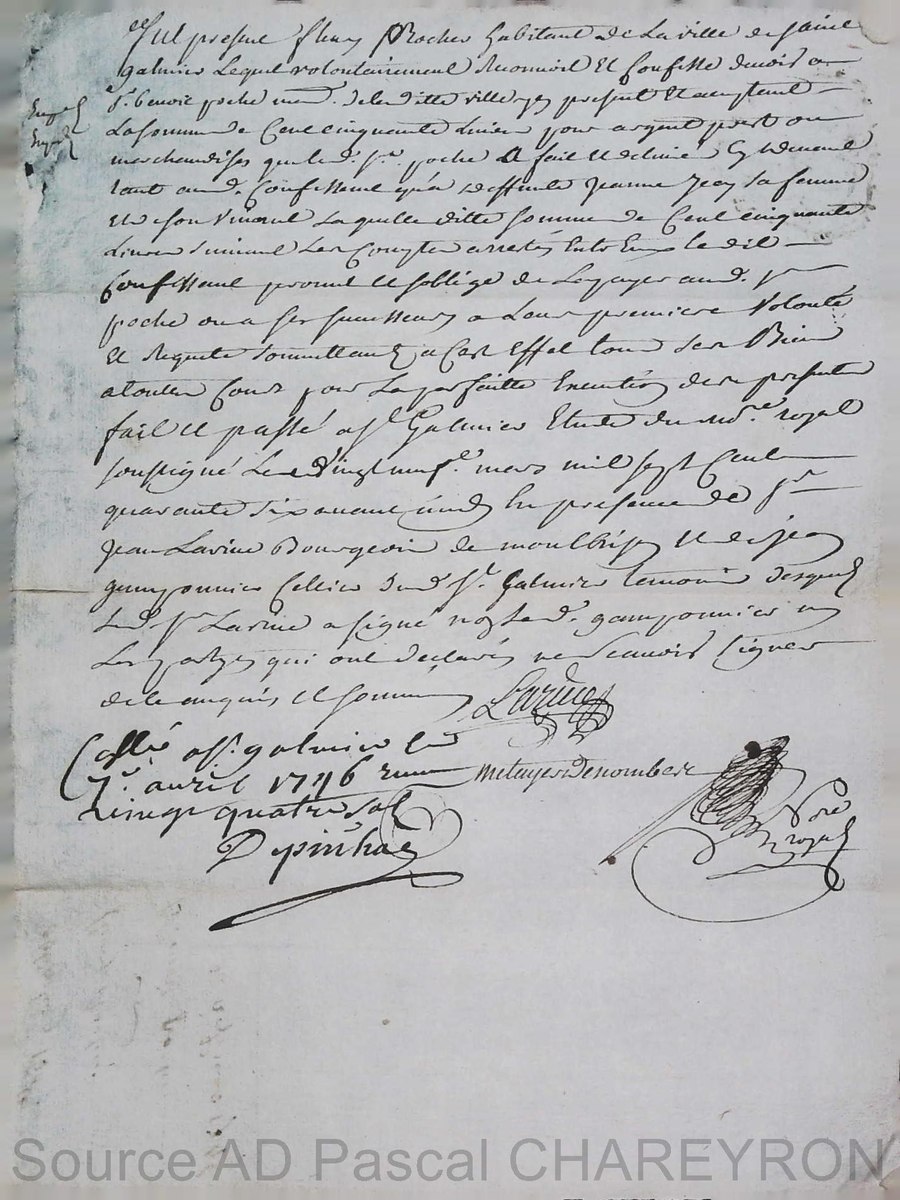 fut present fleury Rocher habitant de La ville de Saint
galmier Lequel volontairement Reconnoit Et Confesse devoir a
Sr. benoit poche md. de laditte ville icy present Et acceptant
La somme de Cent cinquante Livres pour argent prest ou
marchandises que led. Sr. poche a fait Et delivré cy devant
tant aud. Confessant qu'a deffunte Jeanne Jean sa femme
de son vivant Laquelle ditte somme de Cent cinquante
Livres suivant Les Comptes arrestés Entr Eux le dit
Confessant promet Et soblige de Le payer aud. Sr
poche ou a ses successeurs a Leur premiere Volonté
Et Requete soumettant a Cest Effet tous ses Biens
a toutes Cours pour La parfaitte Execution des presentes
fait Et passé a St. Galmier Etude du Nore. royal
soussigné Le vingt neuf mars mil sept Cent
quarante six avant midy En presence de Sr
Jean Larine Bourgeois de montbrison Et de jean
gamponnier Cellier dud. St. Galmier temoins desquels
Led. Sr Larine a signé non led. gamponnier ny
Les partyes qui ont declarés ne scavoir signer
de ce enquis Et sommés Larine
Collé a St. galmier le
7e. avril 1746 recu
vingt quatre sols
Depinhac
metayer Denombert
Nore
royal
Source AD Pascal CHAREYRON